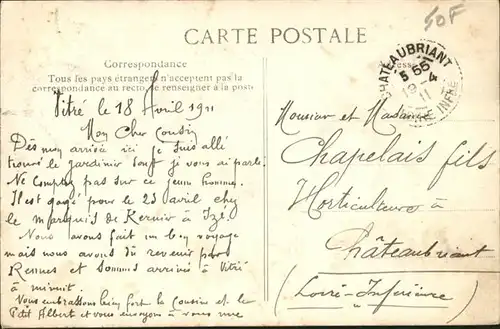 50F
CARTE POSTALE
Correspondance
Tous les pays étrangers n'acceptent pas la
correspondance au recto, se renseigner à la poste
CHATEAUBRIANT
5 55
19 - 4
11
INFRE
Vitré le 18 Avril 1911
Mon Cher Cousin
Dès mon arrivée ici je suis allé
trouvé le jardinier dont je vous ai parlé.
Ne comptez pas sur ce jeune homme.
Il est gagé pour le 23 avril chez
le marquis de Kernier à Izé.
Nous avons fait un bon voyage
mais nous avons dû revenir par
Rennes et sommes arrivés à Vitré
à minuit.
Vous embrasserez bien fort la cousine et le
Petit Albert et vous envoyons à vous une
Monsieur et Madame
Chapelais fils
Horticulteurs à
Châteaubriant
(Loire-Inférieure)